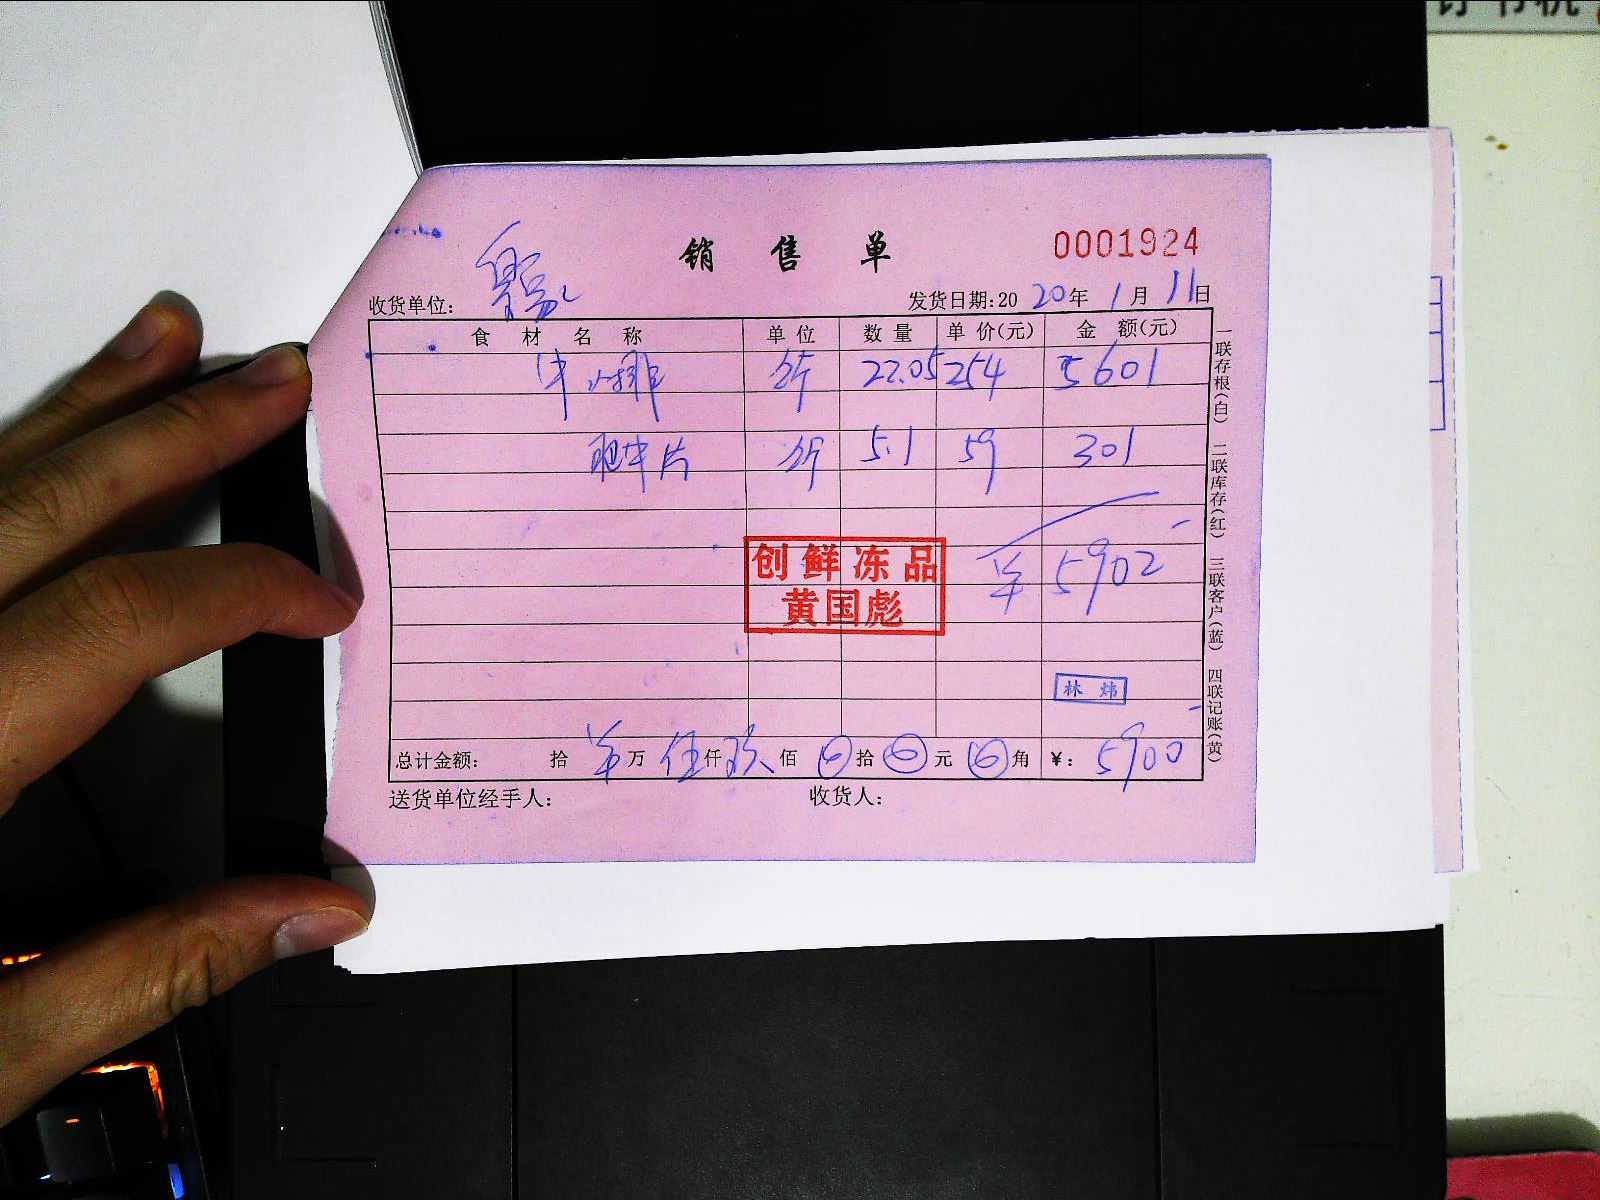 订书机
销售单 0001924
收货单位: 发货日期:2020年1月11日
食材名称 单位 数量 单价(元) 金额(元)
牛小排 斤 22.05 254 5601
肥牛片 斤 5.1 59 301
¥5902
创鲜冻品
黄国彪
林炜
总计金额: 拾 万 伍仟玖佰 拾 元 角 ¥: 5900
送货单位经手人: 收货人:
一联存根(白) 二联库存(红) 三联客户(蓝) 四联记账(黄)